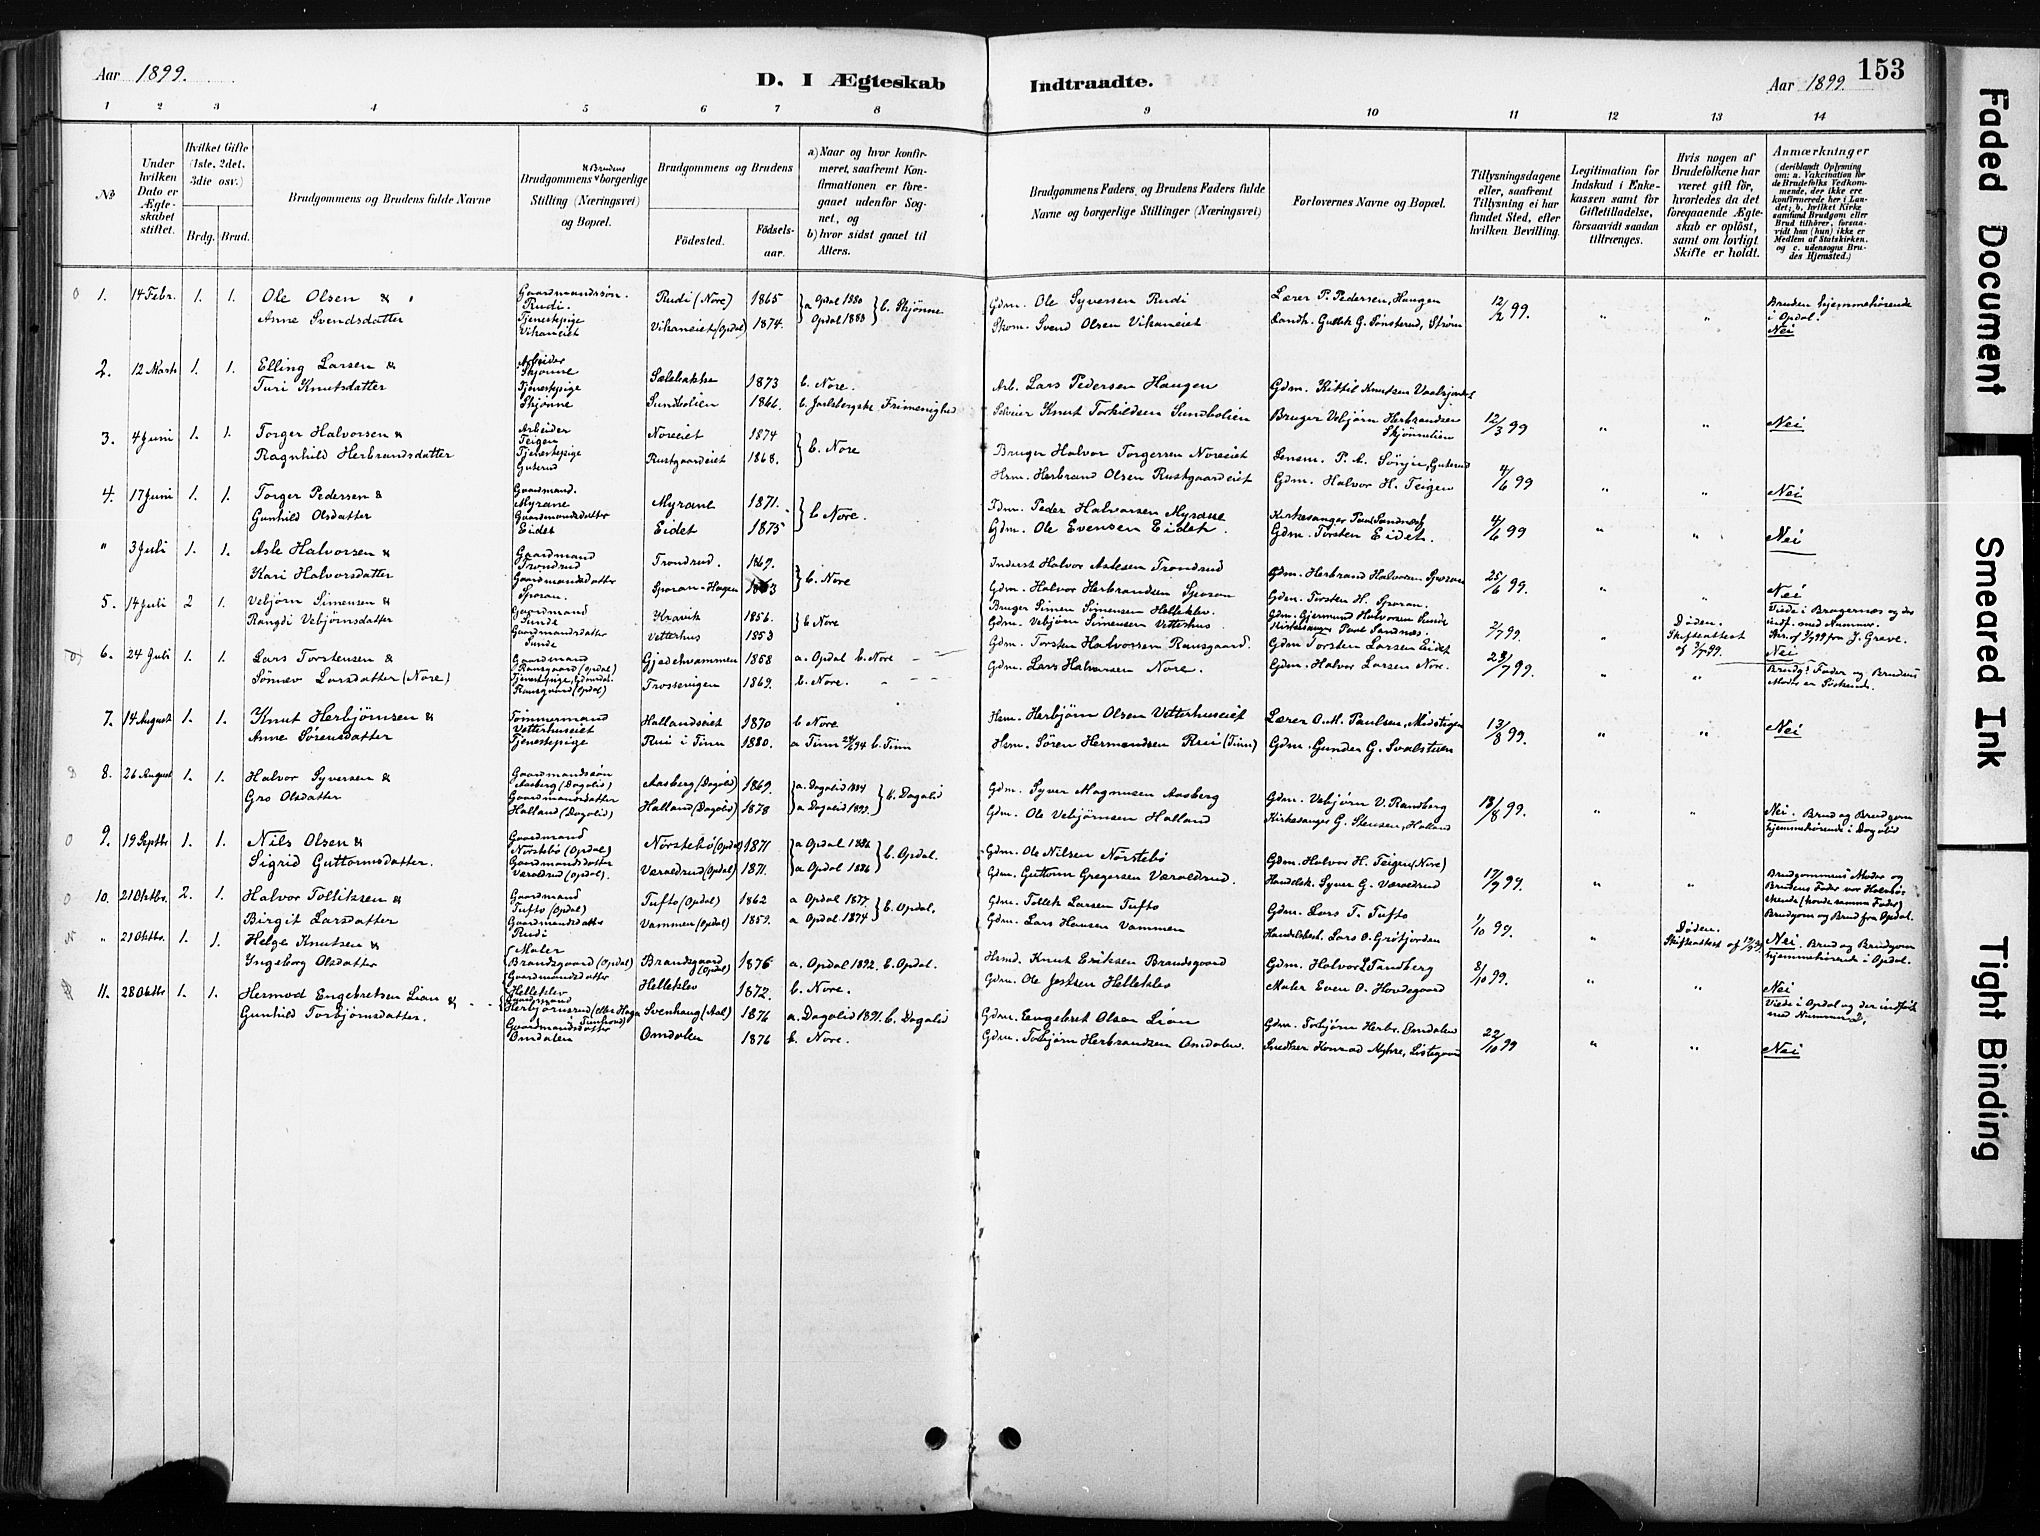 Aar 1899.
D. I Ægteskab Indtraadte.
Aar 1899.
153
1 2 3 4 5 6 7 8 9 10 11 12 13 14
№
Under hvilken Dato er Ægteskabet stiftet.
Hvilket Gifte (1ste, 2det, 3die osv.)
Brdg. Brud.
Brudgommens og Brudens fulde Navne
Brudgommens & Brudens borgerlige Stilling (Næringsvei) og Bopæl.
Brudgommens og Brudens
Fødested.
Fødselsaar.
a) Naar og hvor konfirmeret, saafremt Konfirmationen er foregaaet udenfor Sognet, og
b) hvor sidst gaaet til Alters.
Brudgommens Faders og Brudens Faders fulde Navne og borgerlige Stillinger (Næringsvei)
Forlovernes Navne og Bopæl.
Tillysningsdagene eller, saafremt Tillysning ei har fundet Sted, efter hvilken Bevilling.
Legitimation for Indskud i Enkekassen samt for Giftetilladelse, forsaavidt saadan tiltrænges.
Hvis nogen af Brudefolkene har været gift før, hvorledes da det foregaaende Ægteskab er opløst, samt om lovligt Skifte er holdt.
Anmærkninger
(deriblandt Oplysning om: a. Vakcination for de Brudefolks Vedkommende, der ikke ere konfirmerede her i Landet; b. hvilket Kirkesamfund Brudgom eller Brud tilhører, forsaavidt han (hun) ikke er Medlem af Statskirken, og c. udensogns Brudes Hjemsted.)
1. 14 Febr. 1. 1. Ole Olsen & Gaardmandssøn. Rudi. Rudi (Nore) 1865 a Opdal 1880 b. Skjønne Gdm. Ole Syversen Rudi Lærer P. Pedersen, Haugen 12/2 99. " " Bruden hjemmehørende i Opdal.
Anne Svendsdatter Tjenestepige Vikaneiet Vikaneiet (Opdal) 1874. Opdal 1883 Skom. Svend Olsen Vikaneiet Landh. Gullik G. Tønsterud, Strøm Nei
2. 12 Marts 1. 1. Elling Larsen & Arbeider Skjønne Sælebakke 1873 b. Nore. Arb. Lars Pedersen Haugen Gdm. Kittil Knutsen
Turi Knutsdatter Tjenestepige Skjønne Sundbolien 1866. b. Jarlsbergske Frimenighed Selveier Knut Torkildsen Sundbolien Bruger Vebjørn Herbrandsen Skjønnelien 12/3 99 " " Nei
3. 4 Juni 1. 1. Torger Halvorsen & Arbeider Teigen Noreiet 1874 b. Nore Bruger Halvor Torgersen Noreiet Lensm. P. A. Sønju, Guterud
Ragnhild Herbrandsdatter Tjenestepige Guterud Rustgaardeiet 1868. Hsm. Herbrand Olsen Rustgaardeiet Gdm. Halvor H. Teigen 4/6 99 " " Nei
4. 17 Juni 1. 1. Torger Pedersen & Gaardmand. Myrane Myrane 1871. b Nore. Fdm. Peder Halvorsen Myrane Kirkesanger Paul Sandnæs
Gunhild Olsdatter Gaardmandsdatter Eidet Eidet 1875 Gdm. Ole Evensen Eidet. Gdm. Torsten Eidet. 4/6 99 " " Nei
" 3 Juli 1. 1. Asle Halvorsen & Gaardmand Trondrud Trondrud. 1869. b. Nore Inderst Halvor Aslesen Trondrud Gdm. Herbrand Halvorsen Sporan
Kari Halvorsdatter Gaardmandsdatter Sporan. Sporan-Hagen 1863 Gdm. Halvor Herbrandsen Sporan Gdm. Torsten H. Sporan. 25/6 99. " " Nei
5. 14 Juli 2 1. Vebjørn Simensen & Gaardmand Sunde Kravik 1856. b Nore Bruger Simen Simensen Helleklev. Gdm. Gjermund Halvorsen Sunde Døden. Viede i Bragernæs og der indf. med Nummer.
Rangdi Vebjørnsdatter Gaardmandsdatter Sunde Vetterhus 1853 Gdm. Vebjørn Simensen Vetterhus Kirkesanger Paul Sandnæs. 2/7 99. " Skifteattest af 3/7 99. Kir. af 3/8 99 fra J. Grave.
6. 24 Juli 1. 1. Lars Torstensen & Gaardmand Ramsgaard (Opdal) Gjadehvammen 1868 a. Opdal b. Nore Gdm. Torsten Halvorsen Ramsgaard. Gdm Torsten Larsen Eidet Nei
Sønnev Larsdatter (Nore) Tjenestepige Ramsgaard (Opdal) Trosserigen 1869. b. Nore. Gdm. Lars Halvorsen Nore. Gdm. Halvor Larsen Nore. 23/7 99. " " Brudg! Fader og Brudens Moder er Søskende.
7. 14 August 1. 1. Knut Herbjørnsen & Tømmermand Vetterhuseiet Hallandseiet 1870 b Nore Hsm. Herbjørn Olsen Vetterhuseiet Lærer O. M. Paulsen, Midstigen 13/8 99. " " Nei
Anne Sørensdatter Tjenestepige Rui i Tinn 1880. a Tinn 24/6 94 b. Tinn Hsm. Søren Hermandsen Rui (Tinn) Gdm. Gunder G. Svalstuen
8. 26 August 1. 1. Halvor Syversen & Gaardmandssøn Aasberg (Dagalid) Aasberg (Dagalid) 1869. a. Dagalid 1884 b. Dagalid Gdm. Syver Magnusen Aasberg Gdm. Vebjørn V. Randberg
Gro Olsdatter Gaardmandsdatter Halland (Dagalid) Halland (Dagalid) 1878 a. Dagalid 1892. Gdm. Ole Vebjørnsen Halland Kirkesanger G. Stensen, Halland 13/8 99. " " Nei. Brud og Brudgom hjemmehørende i Dagalid
9. 19 Septbr 1. 1. Nils Olsen & Gaardmand Nørstebø (Opdal) Nørstebø (Opdal) 1871 a Opdal 1886 b. Opdal. Gdm. Ole Nilsen Nørstebø Gdm. Halvor H. Teigen (Nore)
Sigrid Guttormsdatter. Gaardmandsdatter Væraldrud (Opdal). Væraldrud (Opdal) 1871. a. Opdal 1886 Gdm. Guttorm Gregersen Væraldrud. Handelsk. Syver G. Væraldrud 17/9 99. " " Brudgommens Moder og Brudens Fader var Halvsøskende (havde samme Fader)
10. 21 Oktbr. 2. 1. Halvor Tollikssen & Gaardmand Tufto (Opdal) Tufto (Opdal) 1862 a Opdal 1877. b. Opdal. Gdm. Tollek Larsen Tufto Gdm. Lars T. Tufto Brudgom og Brud fra Opdal.
Birgit Larsdatter Gaardmandsdatter Rudi Vammen (Opdal) 1859. a. Opdal 1874 Gdm. Lars Hansen Vammen Handelsbest. Lars O. Grøtjorden 1/10 99. " Døden. Skifteattest af
" 21 Oktbr. 1. 1. Helge Knutsen & Maler Brandsgaard (Opdal) Brandsgaard (Opdal) 1876 a. Opdal 1892. b. Opdal. Hsmd. Knut Eriksen Brandsgaard Gdm. Halvor L Sandberg 8/10 99. " " Nei. Brud og Brudgom hjemmehørende i Opdal.
Yngeborg Olsdatter Gaardmandsdatter Helleklev Helleklev 1872. b. Nore. Gdm. Ole Jostsen Helleklev Maler Even O. Hovdegaard Nei
11. 28 Oktbr 1. 1. Hermod Engebretsen Lian & Gaardmand Herbjørnsrud Svenhaug (Aal) 1876 a. Dagalid 1891. b. Dagalid Gdm. Engebret Olsen Lian Gdm. Tobjørn Herbr. Omdalen Viede i Opdal og der indført med Nummer 2.
Gunhild Torbjørnsdatter. Gaardmandsdatter Omdalen Omdalen 1876 b. Nore. Gdm. Tobjørn Herbrandsen Omdalen. Snedker Konrad Myhre, Listegaard 22/10 99 " " Nei
Faded Document
Smeared Ink
Tight Binding